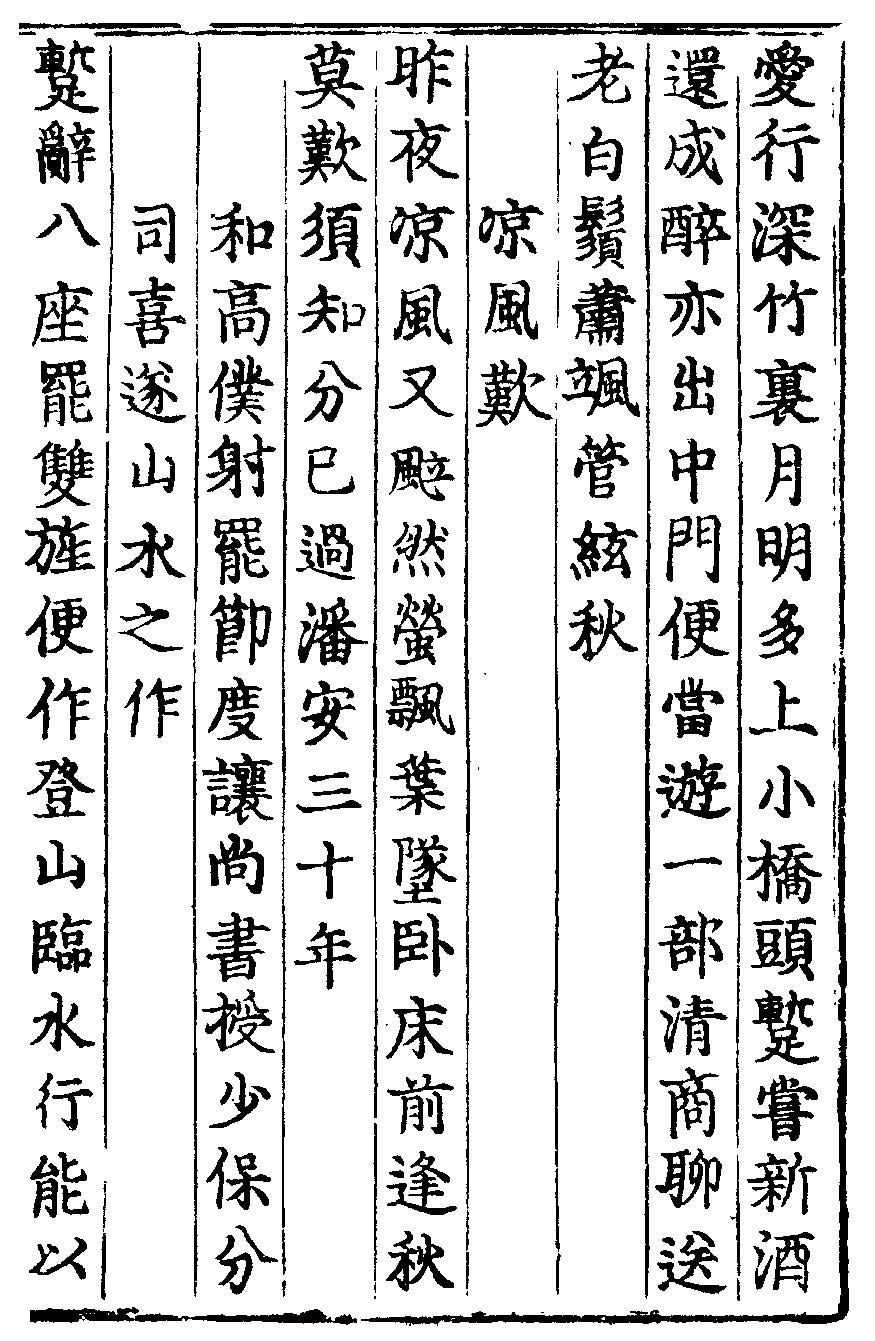 愛行深竹裏月明多上小橋頭蹔嘗新酒
還成醉亦出中門便當遊一部清商聊送
老白鬚蕭颯管絃秋
凉風歎
昨夜凉風又颯然螢飄葉墜卧床前逢秋
莫歎須知分已過潘安三十年
和高僕射罷節度讓尚書授少保分
司喜遂山水之作
蹔辭八座罷雙旌便作登山臨水行能以